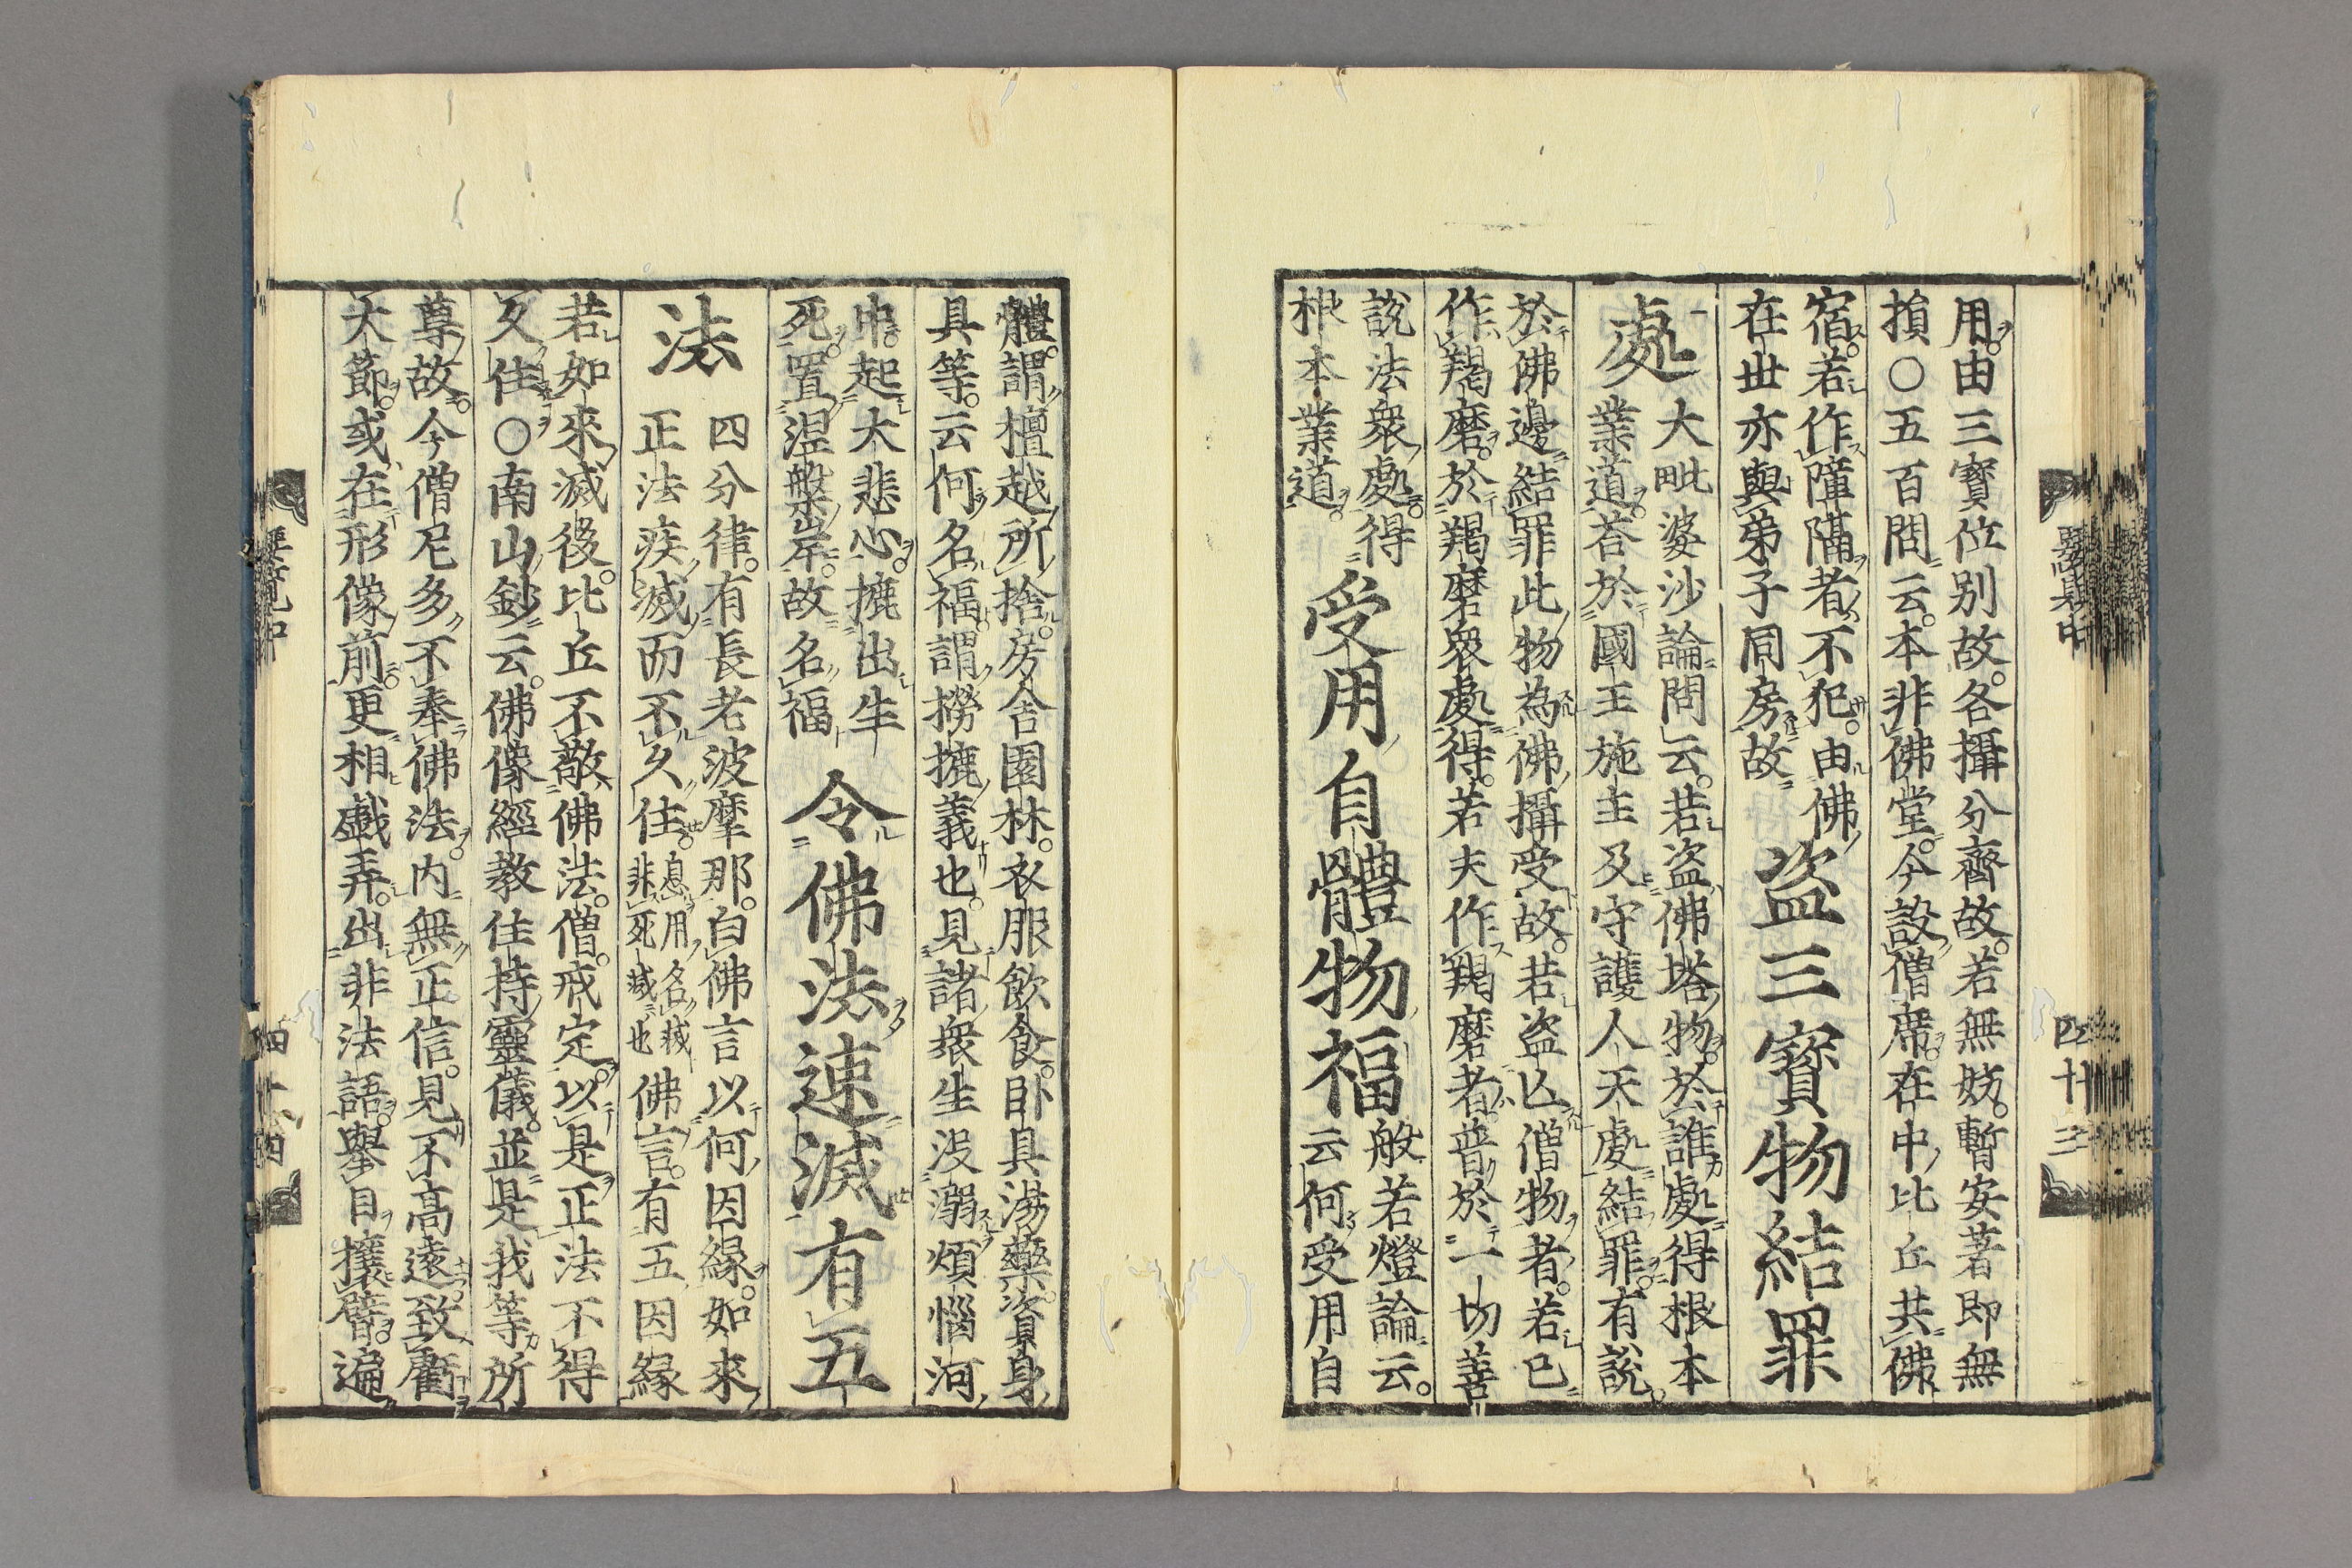 要覽中
四十三
用由三寶位別故各攝分齊故若無妨暫安著即無
損○五百問云本非佛堂今設僧席在中比丘共佛
宿若作障隔者不犯由佛
在世亦與弟子同房故
盜三寶物結罪
處
大毗婆沙論問云若盜佛塔物於誰處得根本
業道荅於國王施主及守護人天處結罪有說
於佛邊結罪此物為佛攝受故若盜亾僧物者若已
作羯磨於羯磨衆處得若夫作羯磨者普於一切善
說法衆處得
根本業道
受用自體物福
般若燈論云
云何受用自
體謂檀越所捨房舍園林衣服飲食卧具湯藥資身
具等云何名福謂撈摝義也見諸衆生没溺煩惱河
中起大悲心摝出生
死置涅槃岸故名福
令佛法速滅有五
法
四分律有長老波摩那白佛言以何因縁如來
正法疾滅而不久住
息用名滅
非死滅也
佛言有五因縁
若如來滅後比丘不敬佛法僧戒定以是正法不得
久住○南山鈔云佛像經教住持靈儀並是我等所
尊故今僧尼多不奉佛法内無正信見不高遠致虧
大節或在形像前更相戲弄出非法語舉目攘臂遍
要覽中
四十四